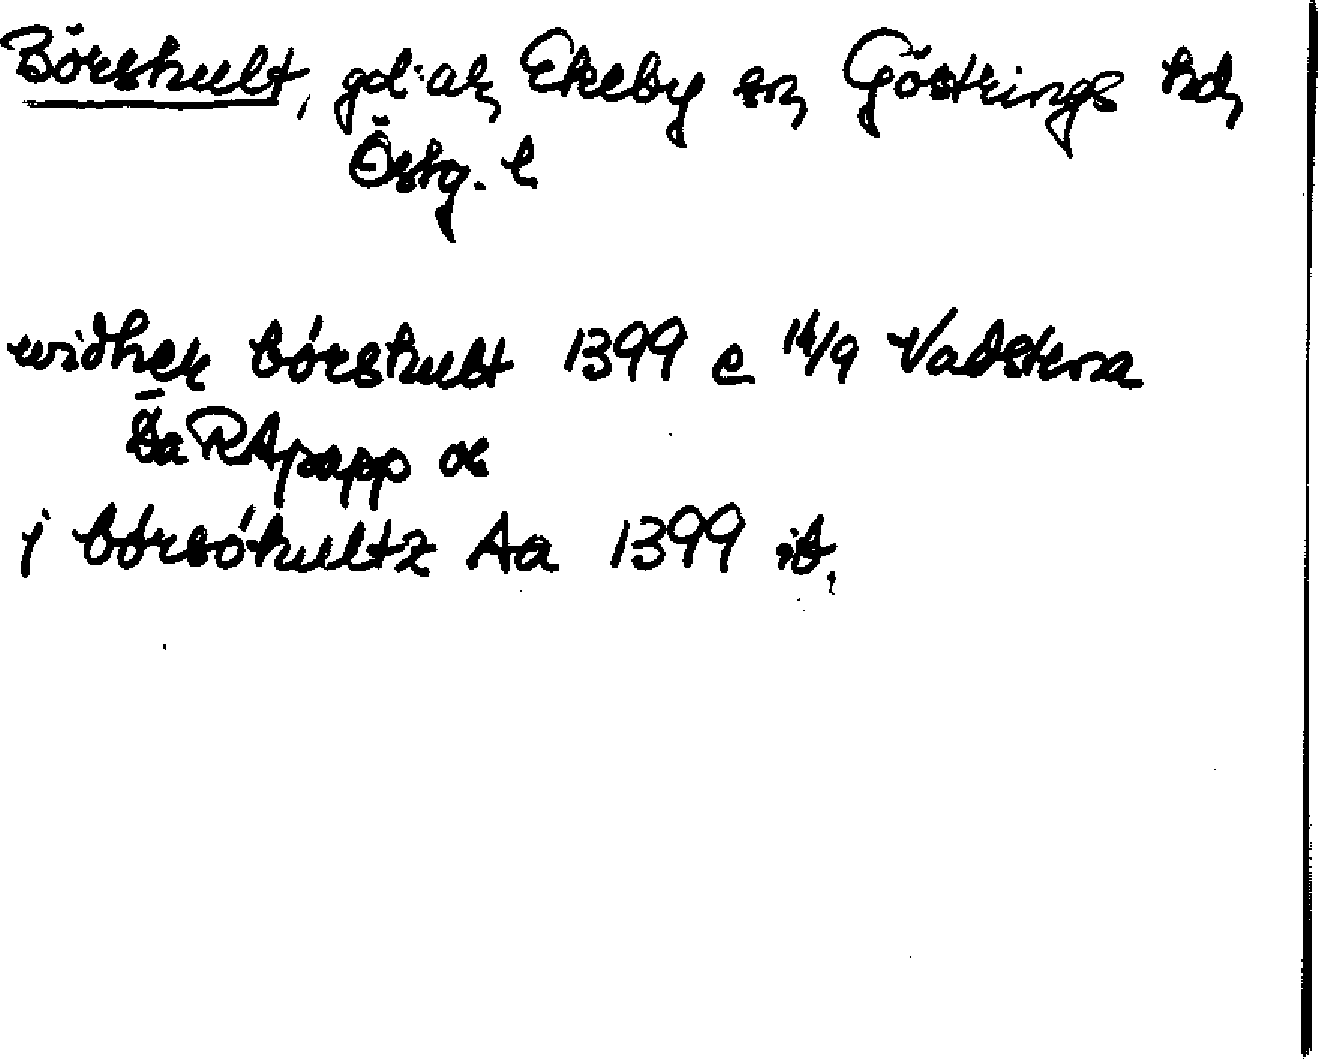 Börskult, gd:ar, Ekeby sn, Göstrings hd,
Östg. l
widher bórskult 1399 e 14/9 Vadstena
RApapp or
j bórsókultz Aa 1399 ib.